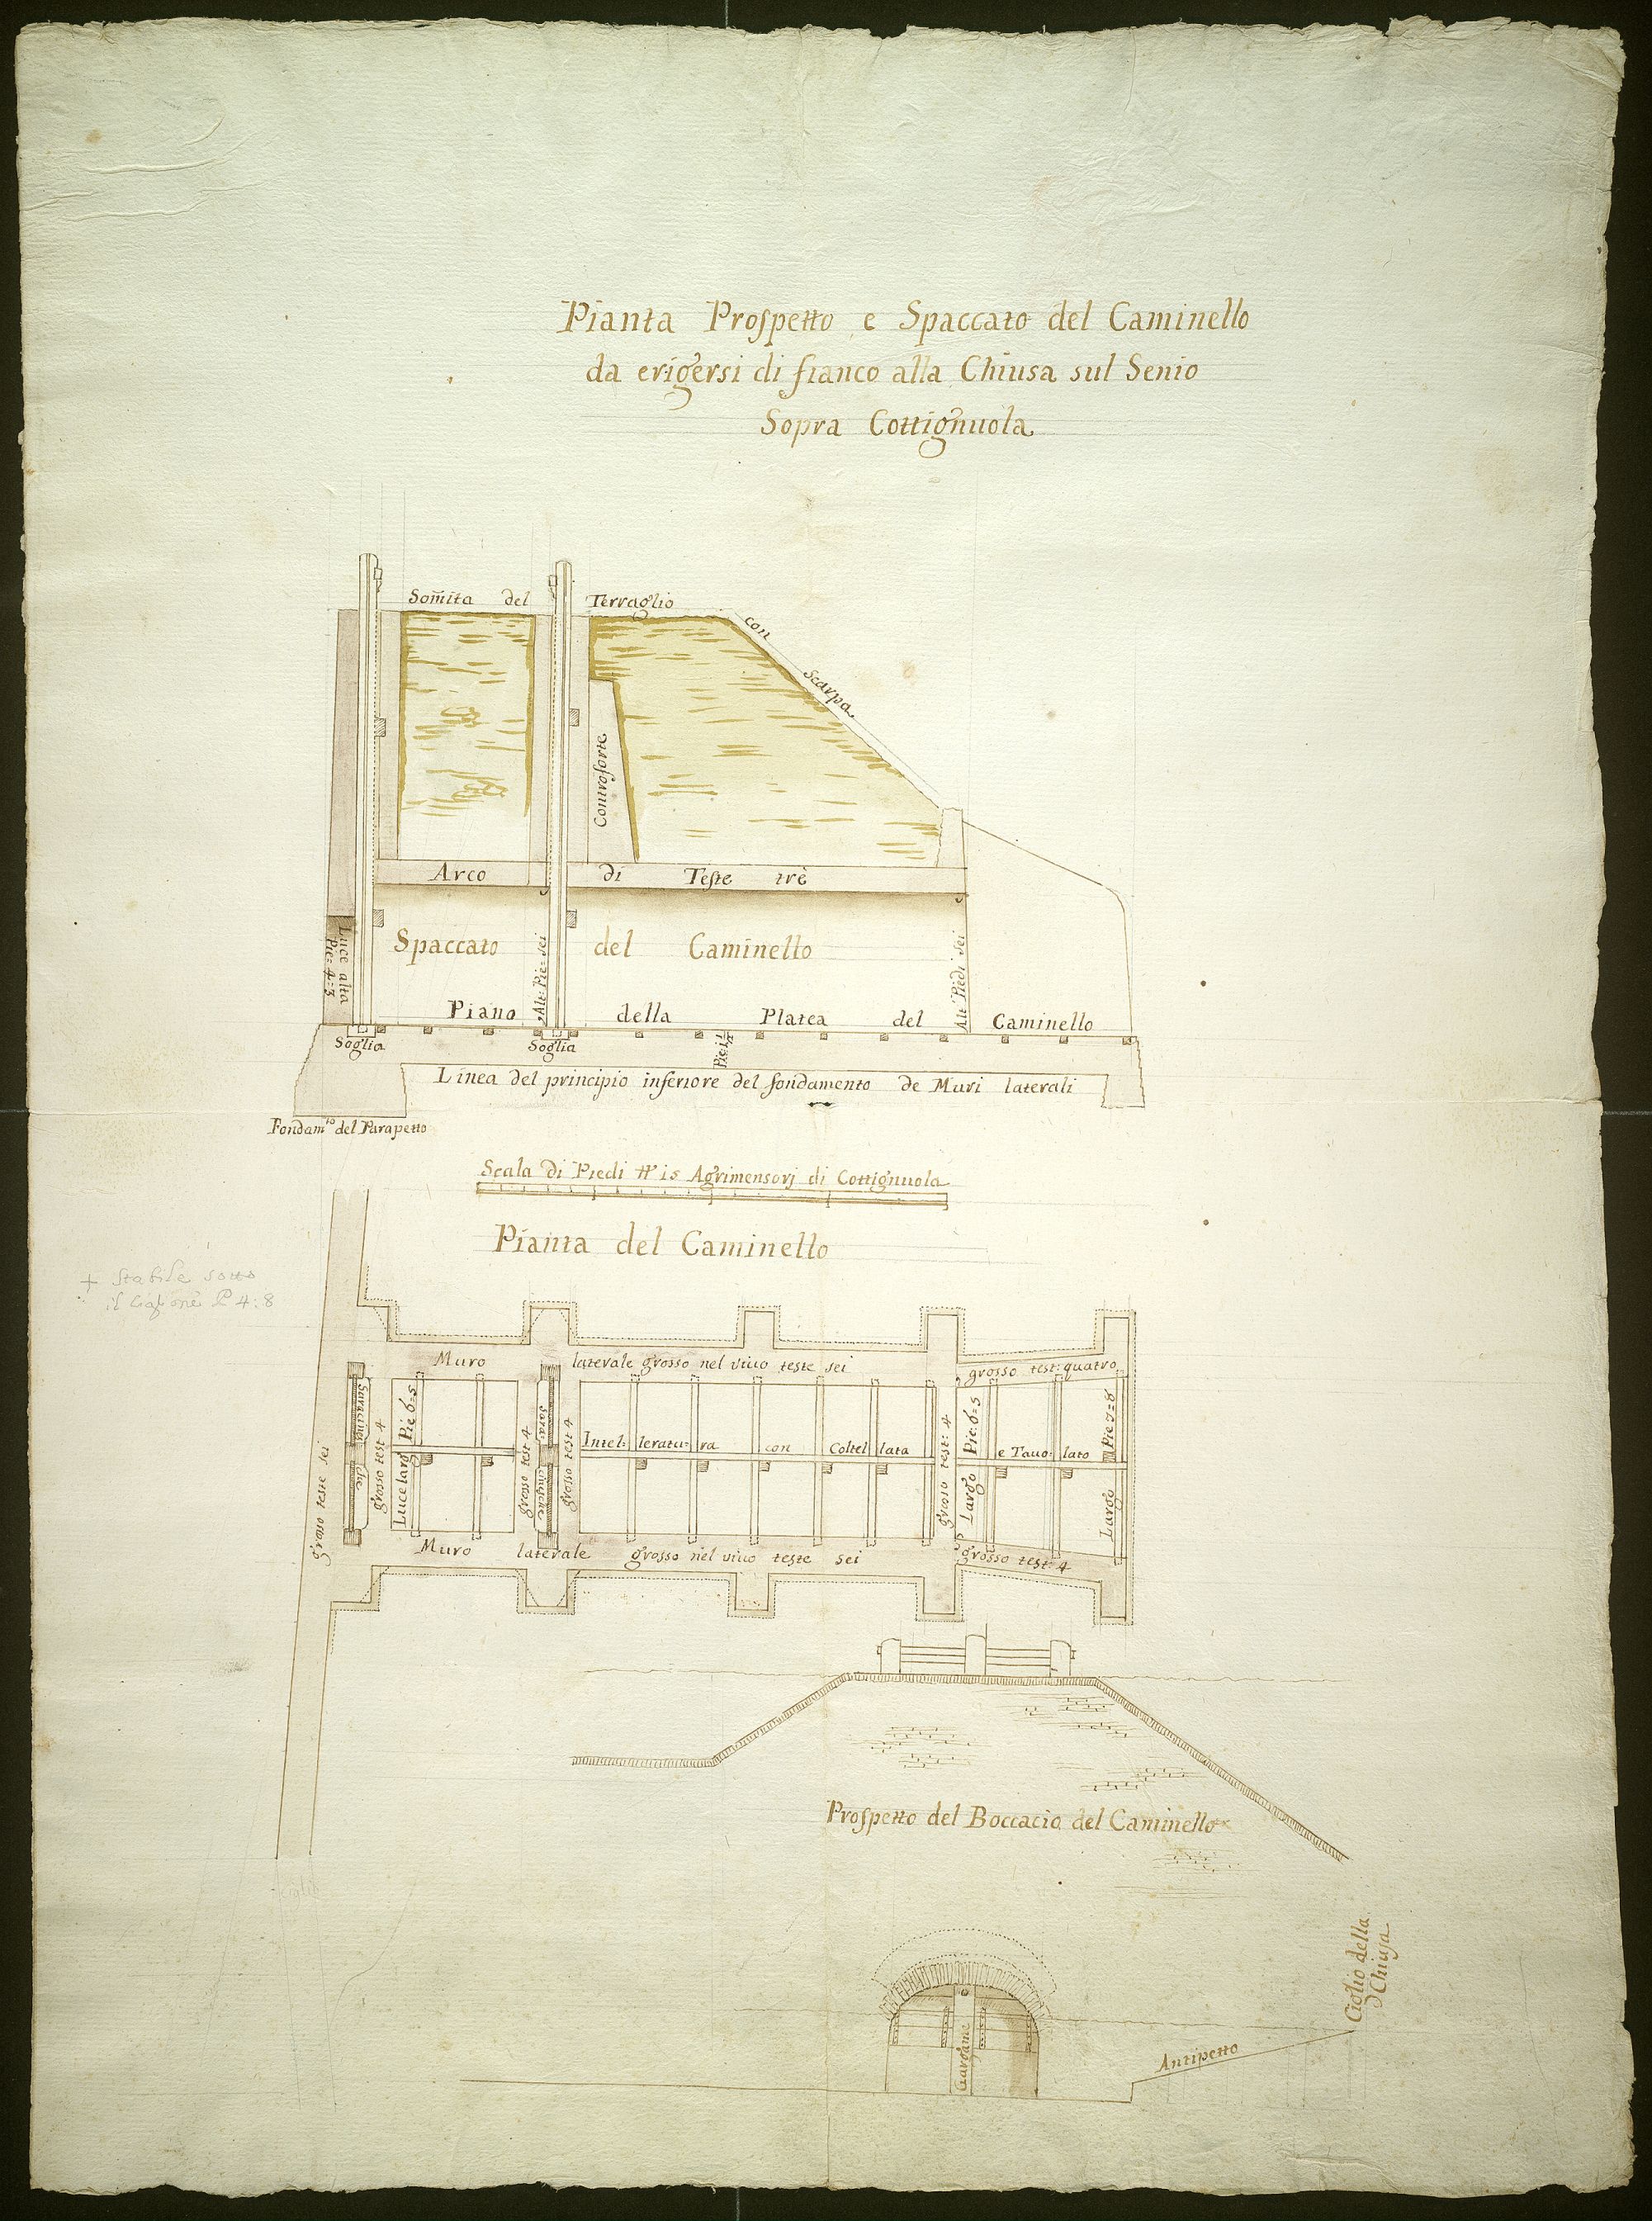 Pianta Prospetto e Spaccato del Caminello
da erigersi di fianco alla Chiusa sul Senio
Sopra Cottignuola
Som̃ita del Terraglio
con Scarpa
Controforte
Arco di Teste trè
Luce alta
Pie: 4=3
Spaccato del Caminello
Alt: Pie= sei
Alt: Piedi sei
Piano della Platea del Caminello
Soglia
Soglia
Linea del principio inferiore del fondamento de Muri laterali
Fondam.to del Parapetto
Scala di Piedi
Agrimensorj di Cottignuola
Pianta del Caminello
+ stabile sotto
il P 4:8
Muro laterale grosso nel vivo teste sei
grosso test: quatro
grosso teste sei
Saracine sche
grosso test 4
Luce larg Pie 6=5
grosso test 4
Sara= cinesche
grosso test 4
Intel= leratu= ra con Coltel lata e Tavo= lato
grosso test: 4
Largo Pie: 6=5
Largo Pie 7=8
Muro laterale grosso nel vivo teste sei
grosso test: 4
Prospetto del Boccacio del Caminello
Gargame
Antipetto
Ciglio della
Chiusa